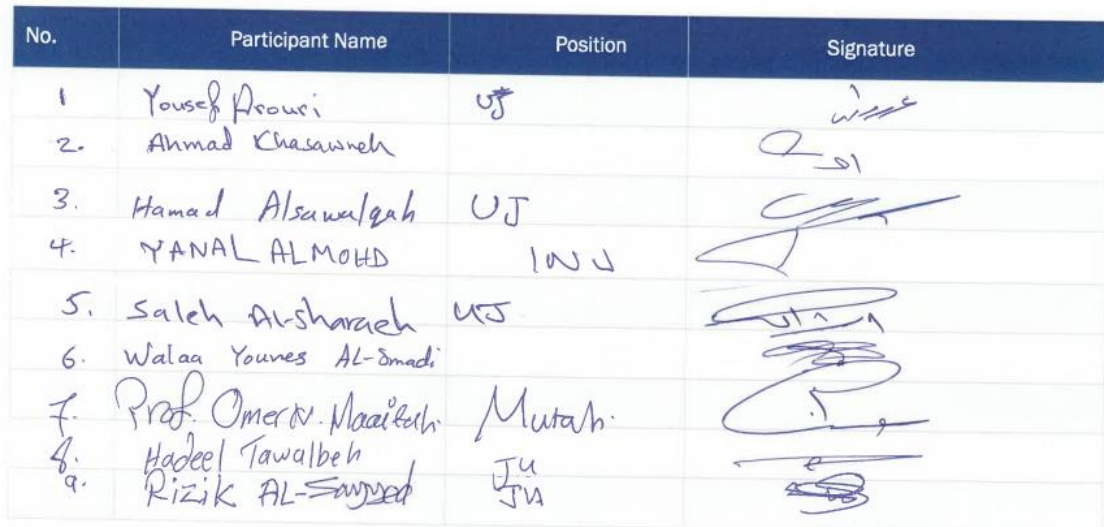 No. Participant Name Position Signature
1 Yousef Arouri UJ
2. Ahmad Khasawneh
3. Hamad Alsawalqah UJ
4. YANAL ALMOHD
5. Saleh Al-sharaeh UJ
6. Walaa Younes AL-Smadi
7. Prof. Omer N. Maaitah. Mutah.
8. Hadeel Tawalbeh JU
9. Rizik AL-Sayyed JU